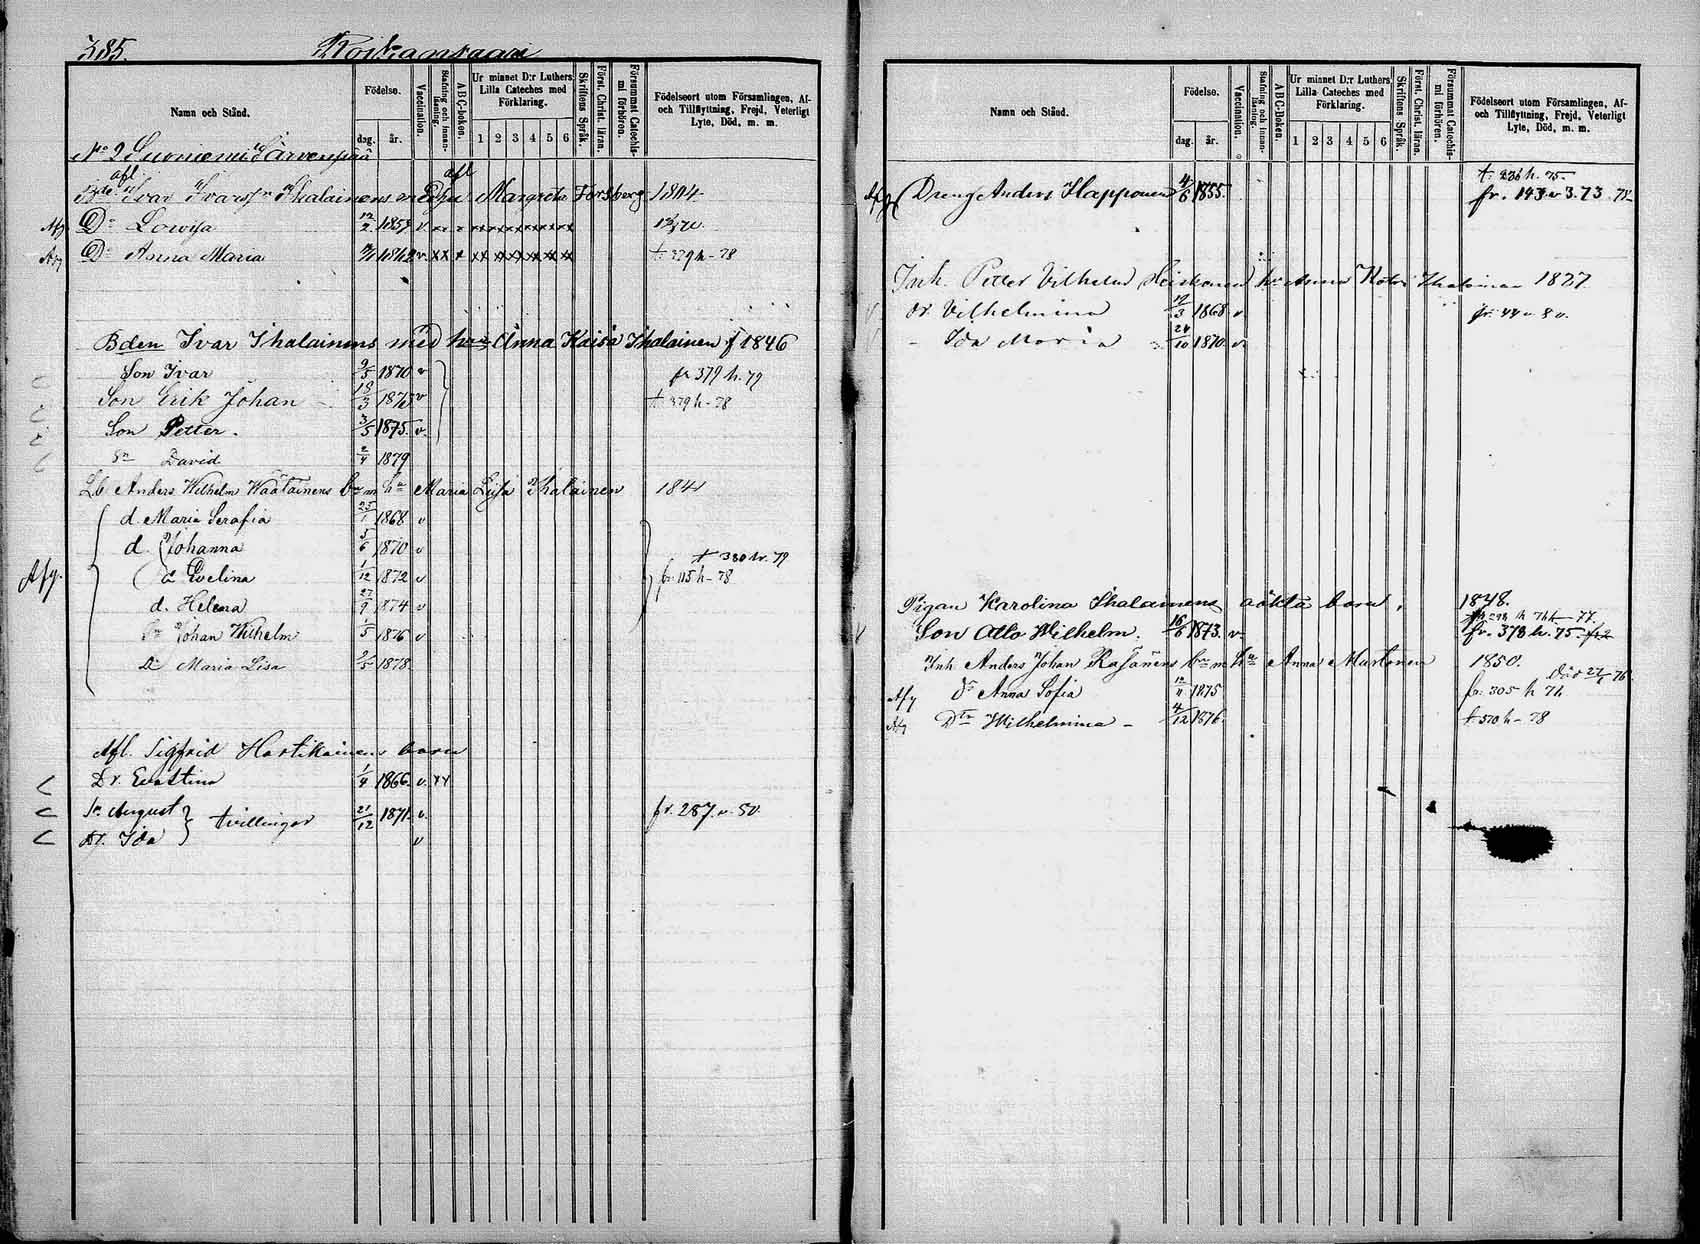 385. Roikansaari
Namn och Stånd.
Födelse.
dag. år.
Vaccination.
Stafning och innan-läsning.
ABC-boken.
Ur minnet D:r Luthers Lilla Cateches med Förklaring.
1 2 3 4 5 6
Skriftens Språk.
Först. Christ. läran.
Försummat Catechis-mi förhören.
Födelseort utom Församlingen, Af- och Tillflyttning, Frejd, Veterligt Lyte, Död, m. m.
No 2 Suoniemi
afl afl
Ivar Ivarss:n Ihalainens Margreta Forsberg 1804
Afg Dr Lovisa 12/2 1857 v
Afg Dr Anna Maria 1862 v t. 379 h - 78
Bden Ivar Ihalainens med hu Anna Kaisa Ihalainen f 1846
Son Ivar 9/5 1870 v fr 379 h. 79
Son Erik Johan 18/3 1873 v t. 379 h - 78
Son Petter. 3/5 1875. v.
Sn David 2/4 1879
Lb Anders Wilhelm Waatainens bn m hu Maria Lisa Ihalainen 184
d. Maria Serafia 25/1 1868 v
d. Johanna 5/6 1870 v t 380 h. 79
Afg. d Evelina 1/12 1872 v fr. 115 h - 78
d. Helena 27/9 1874 v
Sn Johan Wilhelm 1/5 1876 v
Dr Maria Lisa 2/5 1878.
Afl. Sigfrid Hartikainens barn
Dr. Evastina 1/4 1866. v. xx
Sn August 21/12 1871. v. fr. 287. v. 50
tvillingar
Dr. Ida v
Namn och Stånd.
Födelse.
dag. år.
Vaccination.
Stafning och innan-läsning.
ABC-Boken.
Ur minnet D:r Luthers Lilla Cateches med Förklaring.
1 2 3 4 5 6
Skriftens Språk.
Först. Christ. läran.
Försummat Catechis-mi förhören.
Födelseort utom Församlingen, Af- och Tillflyttning, Frejd, Veterligt Lyte, Död, m. m.
t. 236 h. 75.
Afg Dreng Anders Happonen 4/6 1855. fr. 193 v 3. 73
Inh. Petter Vilhelm Heiskanen hu Anna Ihalainen 1827
dr Vilhelmina 17/3 1868 v fr. 44 v 8 v.
Ida Maria 24/10 1870 v
Pigan Karolina Ihalainens oäkta barn. 1848.
Son Otto Wilhelm. 16/6 1873. v fr. 378 h. 75.
Inh Anders Johan Räsänens bn m hu Anna Martonen 1850.
Död 27/1 76
Afg Dr Anna Sofia 12/11 1875 fr. 305 h 76
Afg Dtr Wilhelmina - 4/12 1876. t 510 h - 78